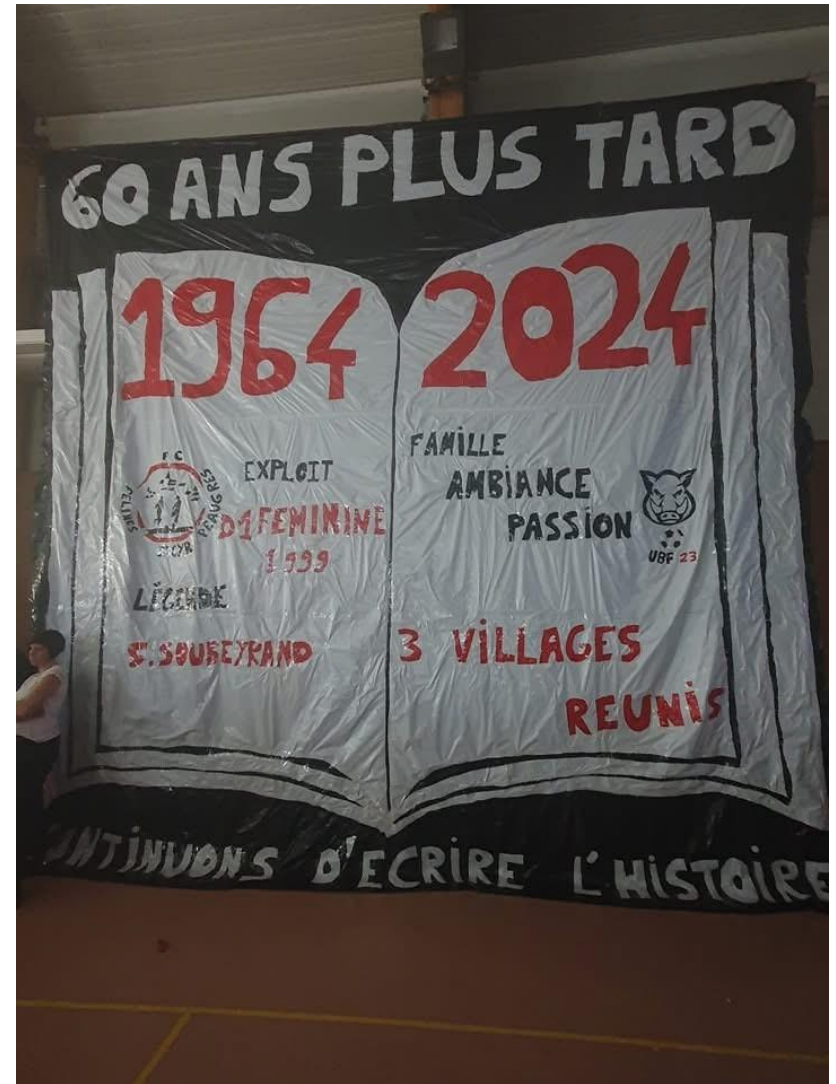 60 ANS PLUS TARD
1964
FC
FELINES
ST CYR
PEAUGRES
EXPLOIT
D1 FEMININE
1999
LÉGENDE
S. SOUBEYRAND
2024
FAMiLLE
AMBiANCE
PASSiON
UBF 23
3 ViLLAGES
REUNiS
ONTiNUONS D'ECRiRE L'HiSTOiRE